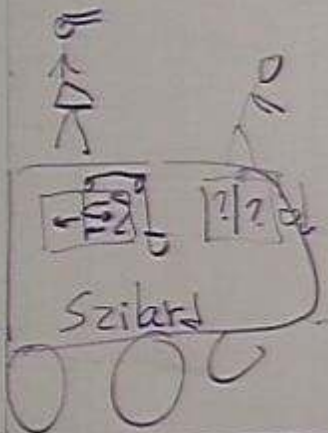 ?|?
Szilard